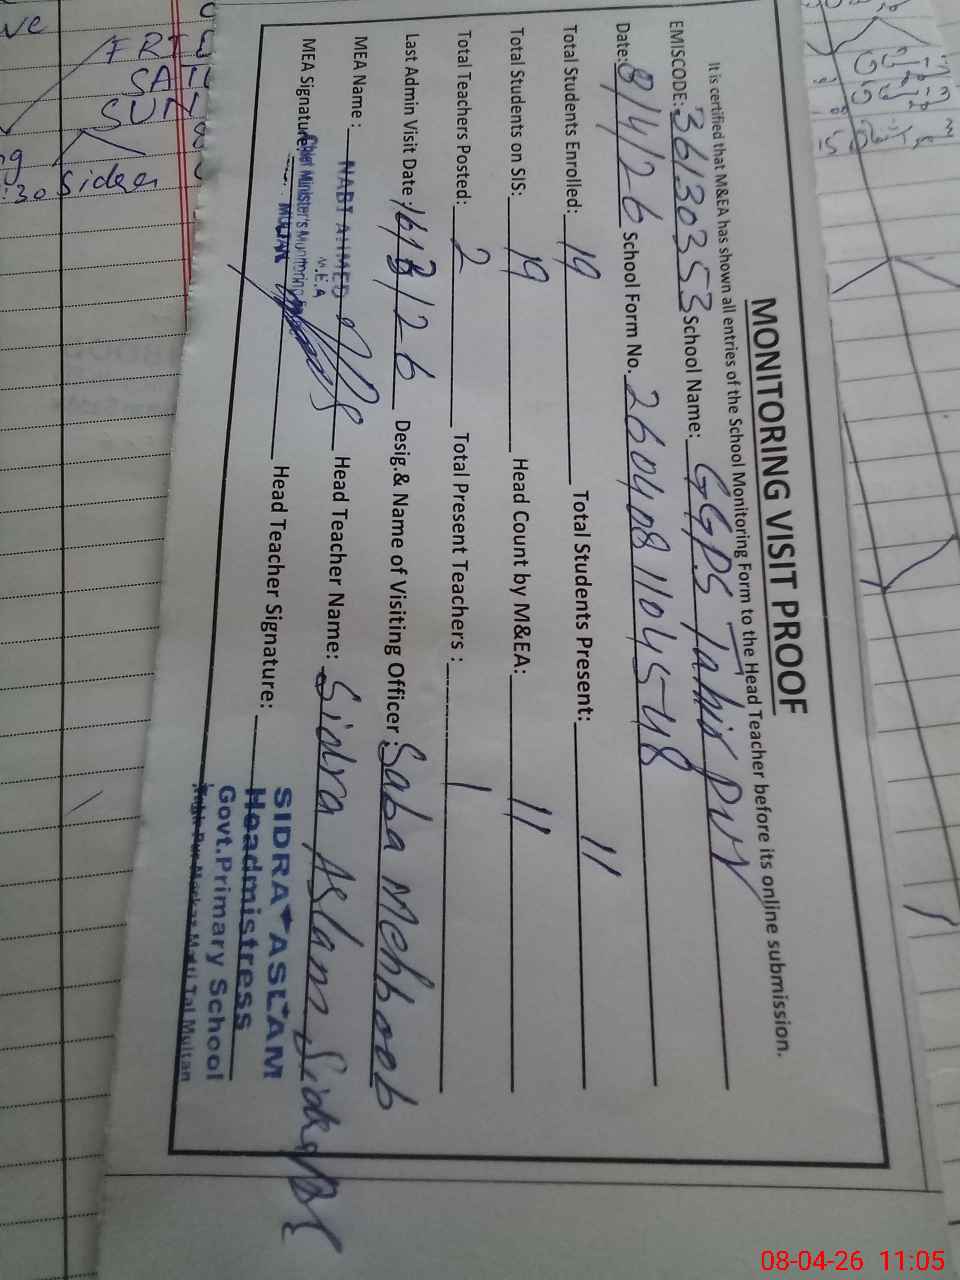 MONITORING VISIT PROOF
It is certified that M&EA has shown all entries of the School Monitoring Form to the Head Teacher before its online submission.
EMISCODE: 36130353 School Name: GGPS Tahir pur
Date: 8/4/26 School Form No. 2604081104548
Total Students Enrolled: 19 Total Students Present: 11
Total Students on SIS: 19 Head Count by M&EA: 11
Total Teachers Posted: 2 Total Present Teachers : 1
Last Admin Visit Date: 16/3/26 Desig.& Name of Visiting Officer: Saba Mehboob
MEA Name : NABI AHMED Head Teacher Name: Sidra Aslam
M.E.A
MEA Signature: Chief Minister's Monitoring Head Teacher Signature:
MULTAN
SIDRA ASLAM
Headmistress
Govt.Primary School
Multan
FRI
SAT
SUN
Sidra
08-04-26 11:05